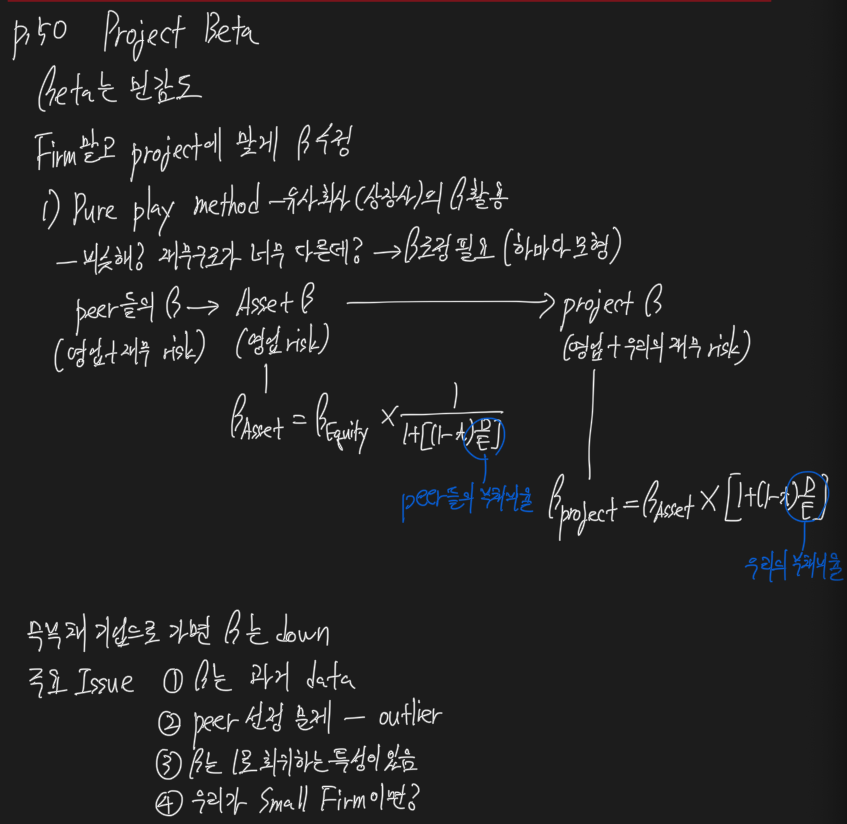 p.50 Project Beta
Beta는 민감도
Firm말고 project에 맞게 β수정
1) Pure play method - 유사회사(상장사)의 β활용
- 비슷해? 재무구조가 너무 다른데? → β조정필요 (하마다모형)
peer들의 β → Asset β → project β
(영업+재무 risk) (영업risk) (영업+우리의 재무 risk)
β_Asset = β_Equity × 1/(1+[(1-t)D/E])
peer들의 부채비율
β_project = β_Asset × [1+(1-t)D/E]
우리의 부채비율
무부채 기업으로 가면 β는 down
주요 Issue ① β는 과거 data
② peer 선정 문제 - outlier
③ β는 1로 회귀하는 특성이 있음
④ 우리가 Small Firm이면?